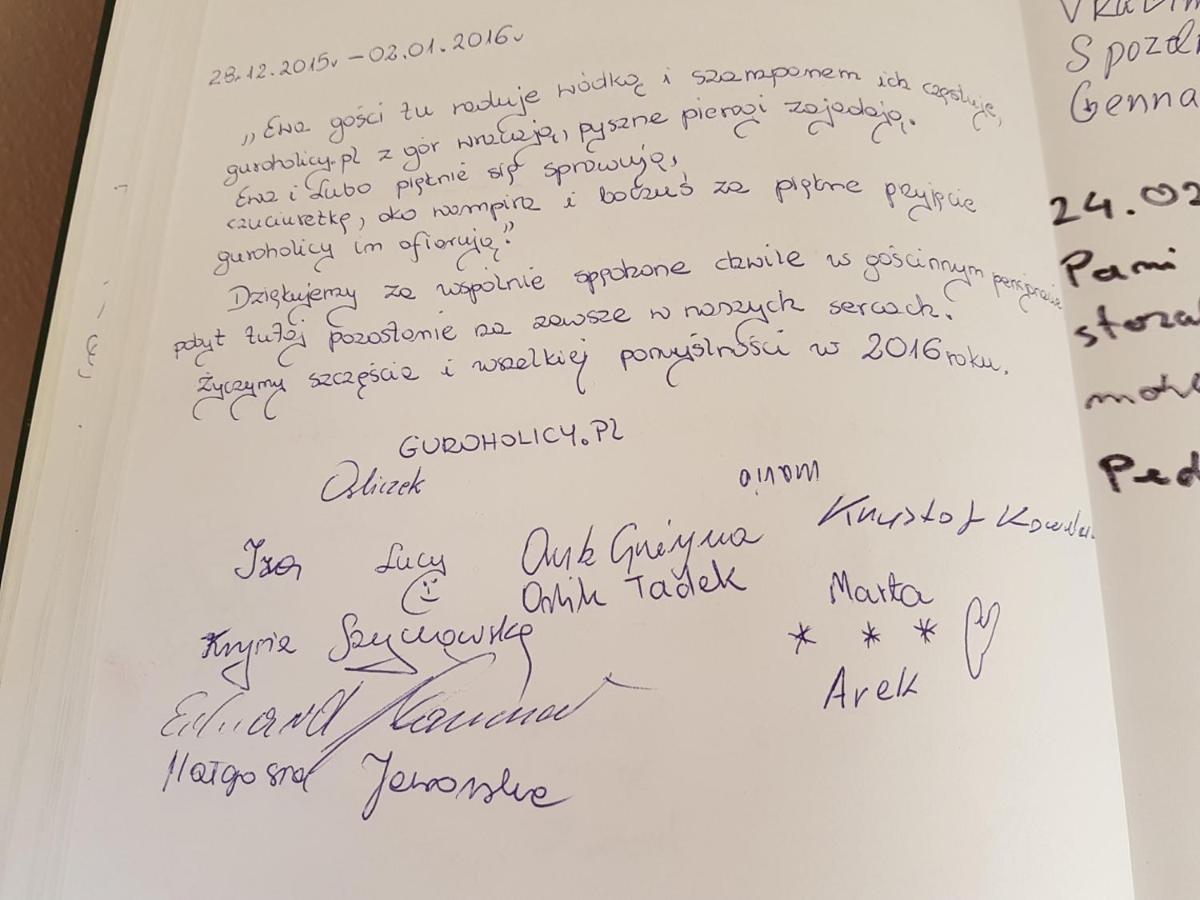 28.12.2015r – 02.01.2016r
„Ewa gości tu raduje wódką i szamponem ich częstuje,
guroholicy.pl z gór wracają, pyszne pierogi zajadają.
Ewa i Lubo pięknie się sprawują,
czuciuretkę, oko wampira i boczuś za piękne przyjęcie
guroholicy im ofiarują."
Dziękujemy za wspólnie spędzone chwile w gościnnym pensjonacie
pobyt tutaj pozostanie na zawsze w naszych sercach.
Życzymy szczęścia i wszelkiej pomyślności w 2016 roku.
GUROHOLICY.PL
Osliczek
mario
Krzysztof
Iza Lucy Grażyna
Tadek
Marta
Krysia
Arek
Edward
Małgosia Jaworska
24.02
Pami
Ped
Spozdr
Genna